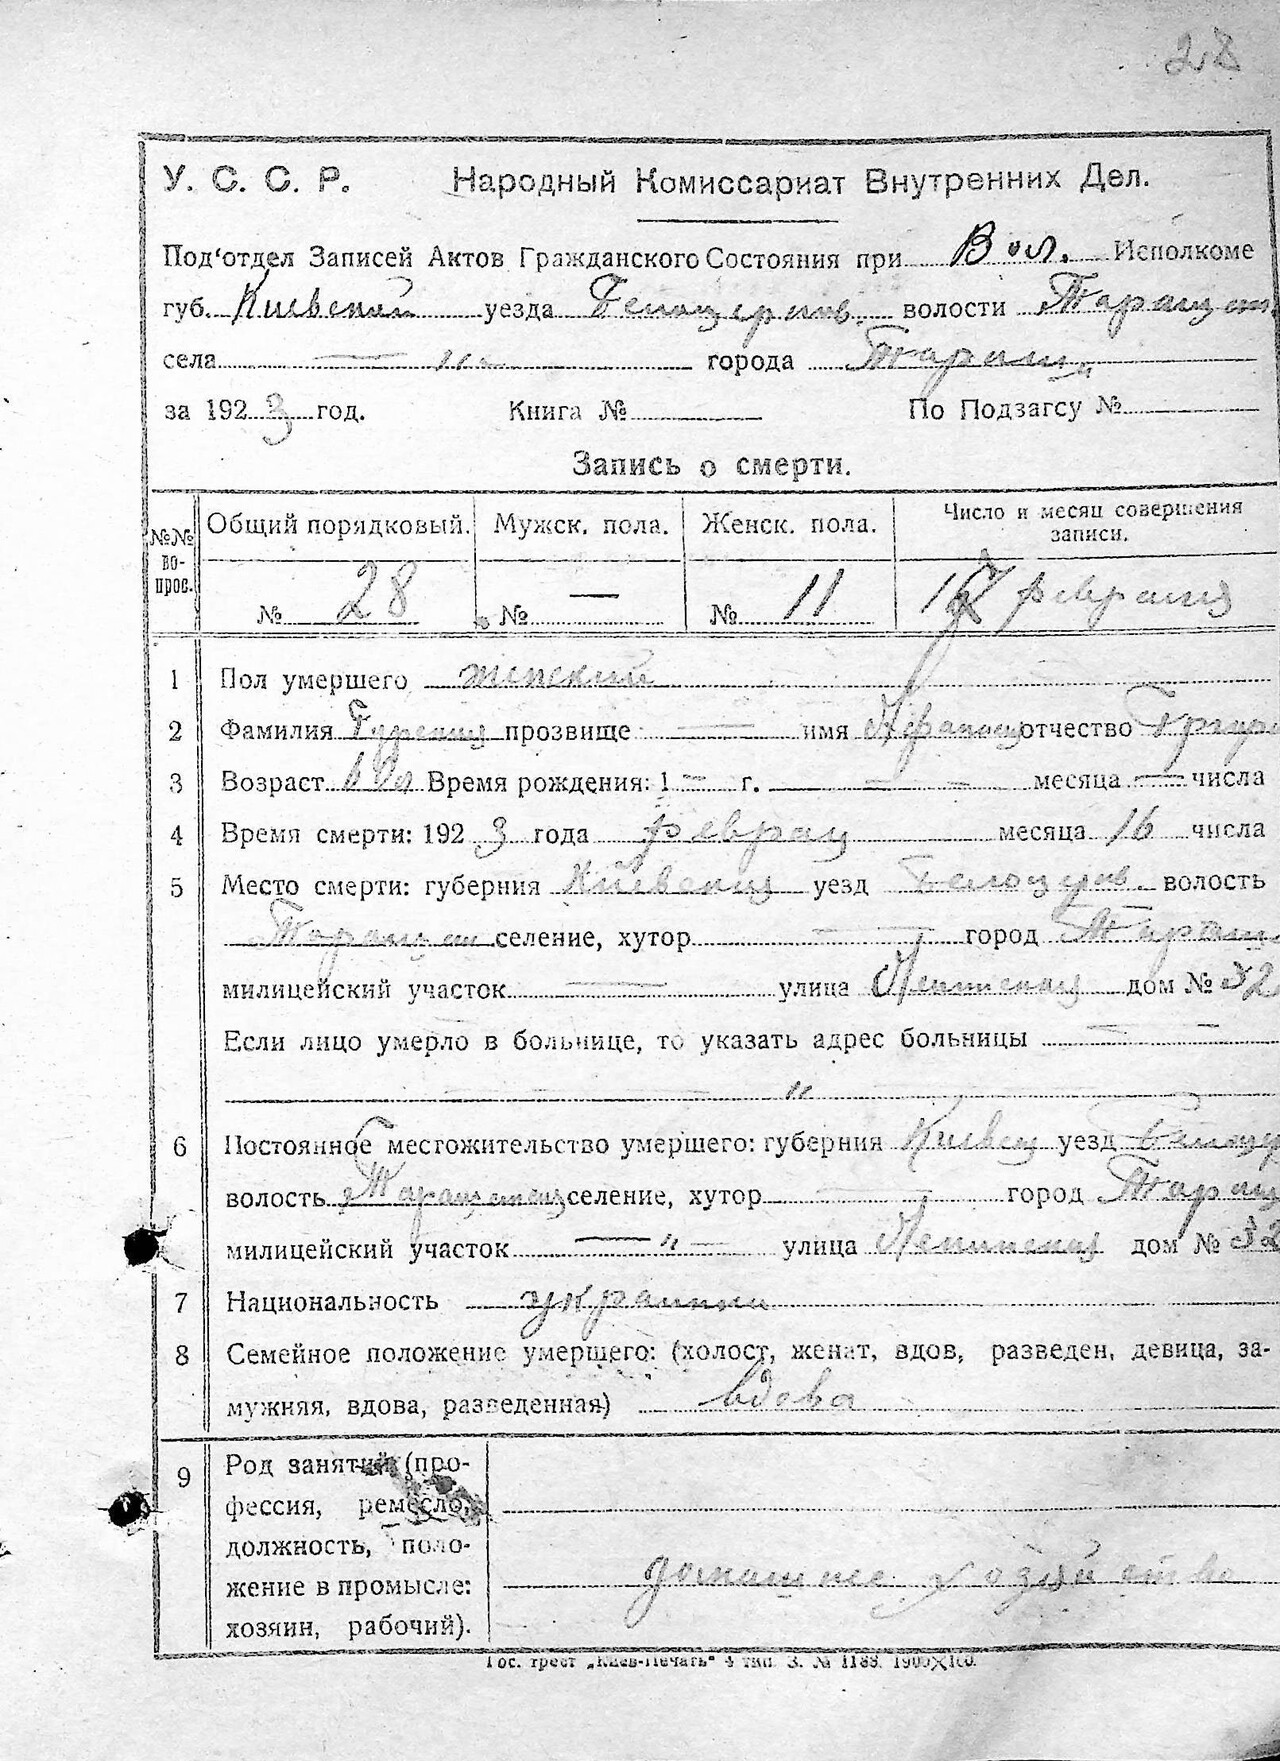 28
У. С. С. Р. Народный Комиссариат Внутренних Дел.
Под'отдел Записей Актов Гражданского Состояния при Вол. Исполкоме
губ. Киевской уезда Белоцерков. волости Таращан.
села — " — города Таращи
за 1923 год. Книга № По Подзагсу №
Запись о смерти.
№№ вопрос. Общий порядковый. Мужск. пола. Женск. пола. Число и месяц совершения записи.
№ 28 № — № 11 17 февраля
1 Пол умершего женский
2 Фамилия прозвище — имя отчество Григор
3 Возраст Время рождения: 1 — г. — месяца — числа
4 Время смерти: 1923 года февраля месяца 16 числа
5 Место смерти: губерния Киевская уезд Белоцерков. волость
Таращан селение, хутор — город Тараща
милицейский участок — улица Ленинская дом № 32
Если лицо умерло в больнице, то указать адрес больницы —
— " —
6 Постоянное местожительство умершего: губерния Киевск уезд Белоцер
волость Таращанская селение, хутор — город Таращ
милицейский участок — " — улица Ленинская дом № 32
7 Национальность украинка
8 Семейное положение умершего: (холост, женат, вдов, разведен, девица, за-
мужняя, вдова, разведенная) вдова
9 Род занятий (про-
фессия, ремесло,
должность, поло-
жение в промысле: домашнее хозяйство
хозяин, рабочий).
Гос. трест „Киев-Печать" 4 тип. З. № 1188. 1900×100.